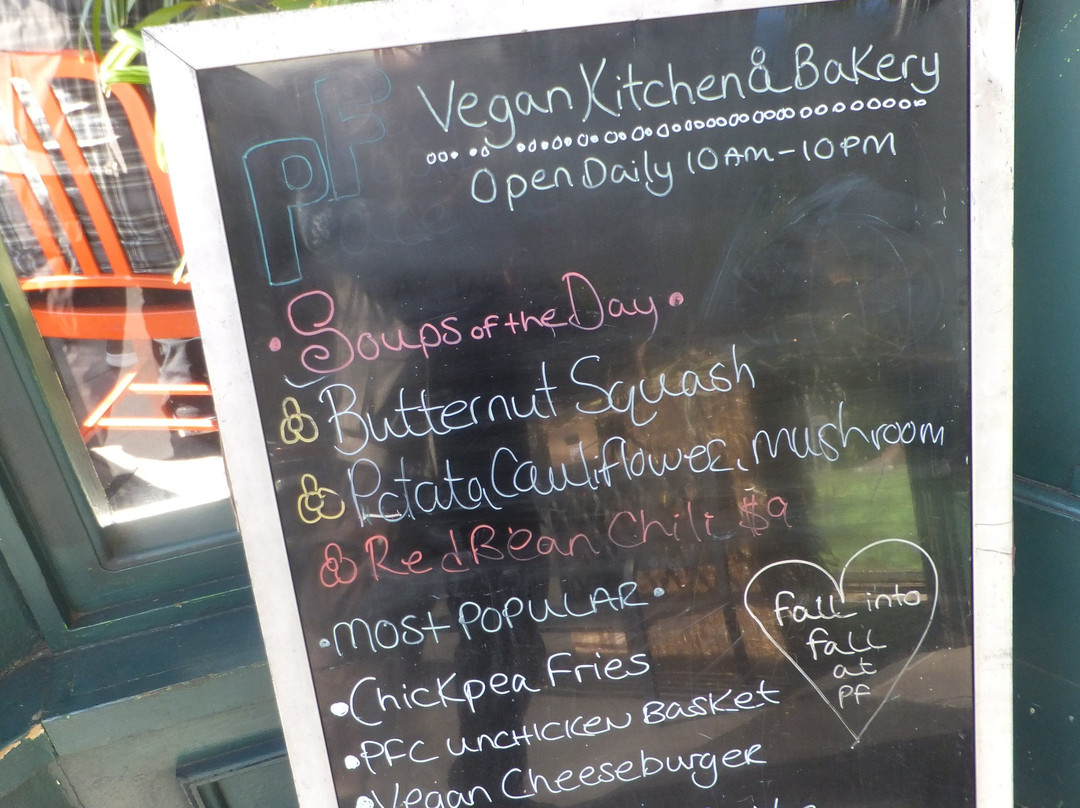 PF
Vegan Kitchen & Bakery
Open Daily 10AM-10PM
• Soups of the Day •
Butternut Squash
Potata Cauliflower, mushroom
Red Bean Chili $9
• MOST POPULAR •
• Chickpea Fries
• PFC UNCHICKEN BASKET
• Vegan Cheeseburger
fall into
fall
at
PF